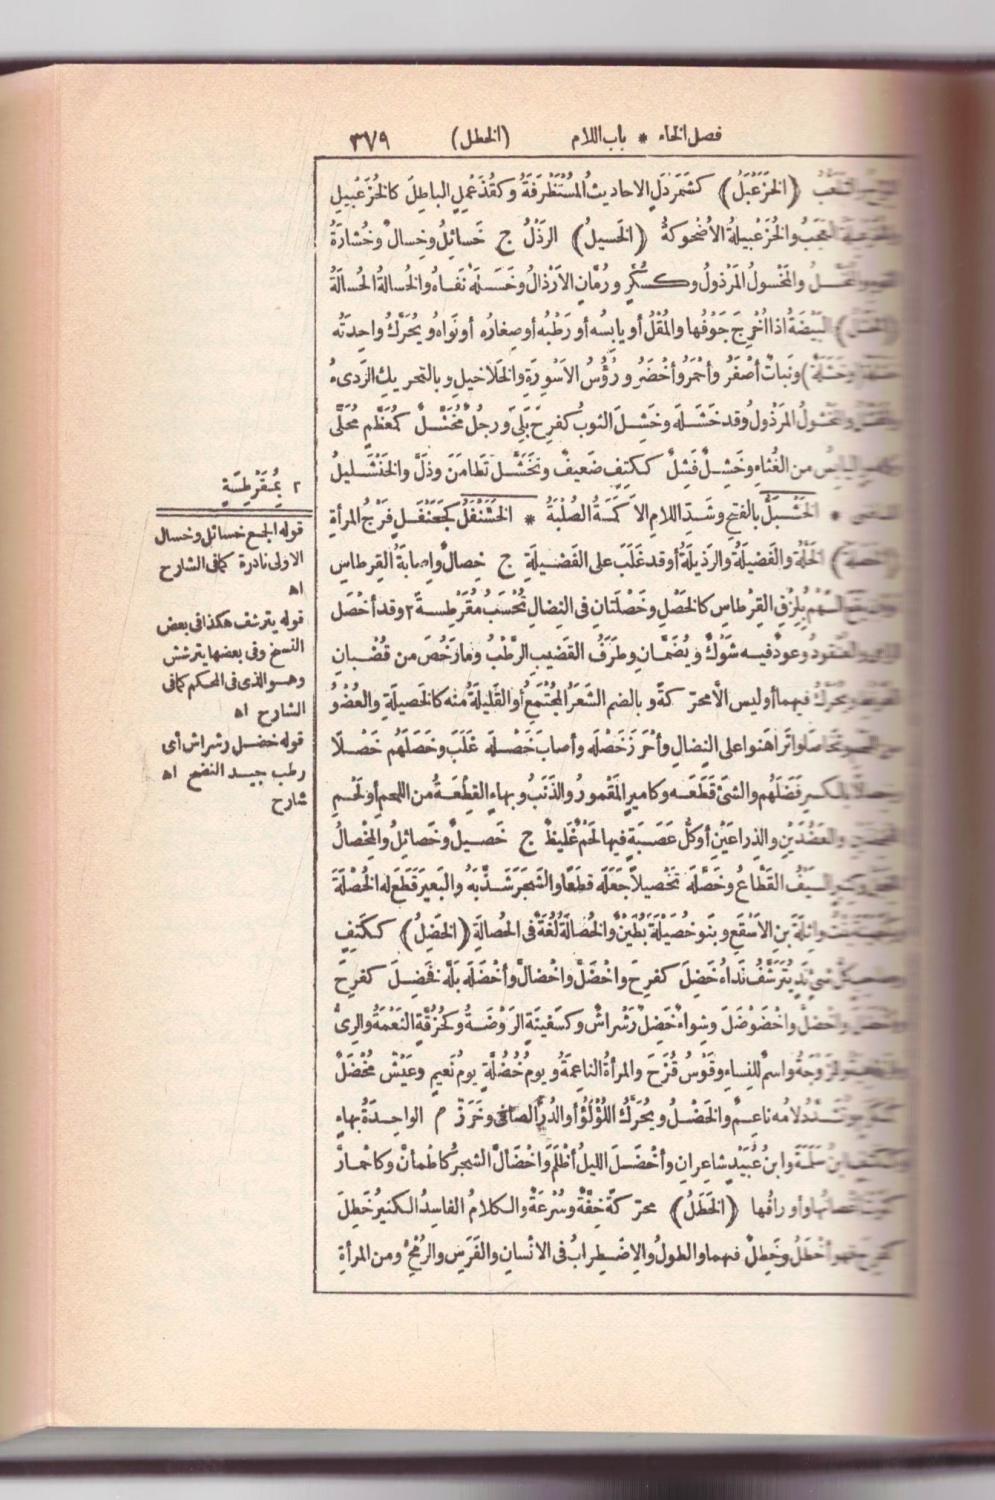 فصل الخاء * باب اللام (الخطل) ٣٧٩
(الخَزَعْبَلُ) كشَمَرْدَلٍ الاحاديثُ المُسْتَظْرَفَةُ وكقُذَعْمِلٍ الباطِلُ كالخُزَعْبِيلِ
العَجَبُ والخُزَعْبِيلَةُ الأُضْحوكَةُ (الخَسيلُ) الرَذْلُ ج خَسائِلُ وخِسالٌ وخُشارَةُ
والمَخْسولُ المَرْذولُ وكسُكَّرٍ ورُمَّانٍ الأَرْذالُ وخَسَلَهُ نَفاهُ والخُسالَةُ الحُسالَةُ
البَيْضَةُ اذا أُخْرِجَ جَوْفُها والمُقْلُ أو يابِسُه أو رَطْبُه أو صِغارُه أو نَواهُ ويُحَرَّكُ واحِدَتُه
ونَباتٌ أصْفَرُ وأحْمَرُ وأخْضَرُ ورُؤُسُ الأَسْوِرَةِ والخَلاخيلِ وبالتحريكِ الرَدىءُ
المَرْذولُ وقد خَشَلَه وخَشِلَ الثوبُ كفَرِحَ بَلِىَ ورجُلٌ مُخَشَّلٌ كمُعَظَّمٍ مُحَلًّى
اليابِسُ من الغُثاءِ وخَشِلٌ فَشِلٌ ككَتِفٍ ضَعيفٌ وتَخَشَّلَ تَطامَنَ وذَلَّ والخَنْشَليلُ
* الخَشْبَلُّ بالفتحِ وشَدِّ اللامِ الاَكَمَةُ الصُلْبَةُ * الخَشَنْفَلُ كجَحَنْفَلٍ فَرْجُ المرأةِ
الخَلَّةُ والفَضيلَةُ والرَذيلَةُ أو قد غَلَبَ على الفَضيلَةِ ج خِصالٌ واِصابَةُ القِرطاسِ
السَّهْمُ بِلِزْقِ القِرْطاسِ كالخَصْلِ وخَصْلَتانِ فى النِضالِ تُحْسَبُ مُقَرْطِسَةً ٢ وقد أخْصَلَ
والعُنْقودُ وعودٌ فيه شَوْكٌ ويُضَمَّانِ وطَرَفُ القَضيبِ الرَّطْبُ وما رَخُصَ من قُضْبانِ
ويُحَرَّكُ فيهما أو ليس الاَّ محرّكةً وبالضم الشَعَرُ المُجْتَمِعُ أو القَليلَةُ منه كالخَصيلَةِ والعُضْوُ
وتَخاصَلوا تَراهَنوا على النِضالِ وأحْرَزَ خَصْلَه وأصابَ خَصْلَه غَلَبَ وخَصَلَهُم خَصْلاً
فَضَلَهُم والشىْءَ قَطَعَه وكاميرٍ المَقْمورُ والذَنَبُ وبهاءٍ القِطْعَةُ من اللحمِ أو لَحْمُ
والعَضُدَيْنِ والذِراعَيْنِ أو كُلُّ عَصَبَةٍ فيها لَحْمٌ غَليظٌ ج خَصيلٌ وخَصائِلُ والمِخْصالُ
السَيْفُ القَطَّاعُ وخَصَّلَه تَخْصيلاً جَعَلَه قِطَعًا والشَجَرَ شَذَّبَهُ والبَعيرَ قَطَعَ له الخُصْلَةَ
واثِلَةَ بنِ الاَسْقَعِ وبَنو خُصَيْلَةَ بُطَيْنٌ والخُصالَةُ لُغَةٌ فى الحُصالَةِ (الخَضِلُ) ككَتِفٍ
كلُّ شىْءٍ نَدٍ يُتَرَشَّفُ نَداهُ خَضِلَ كفَرِحَ واخْضَلَّ واخْضالَّ وأخْضَلَه بَلَّه فخَضِلَ كفَرِحَ
واخْضَوْضَلَ وشِواءٌ خَضِلٌ رَشْراشٌ وكسَفينَةٍ الرَوْضَةُ وكحُزُقَّةٍ النَعْمَةُ والرِىُّ
والزَوْجَةُ واسمٌ للنِساءِ وقَوْسُ قُزَحَ والمرأةُ الناعِمَةُ ويومُ خُضُلَّةٍ يومُ نَعيمٍ وعَيْشٌ مُخْضَلٌّ
لامُه ناعِمٌ والخَضْلُ ويُحَرَّكُ اللُؤْلُؤُ أو الدُرُّ الصافى وخَرَزٌ م الواحِدَةُ بهاءٍ
سَلَمَةَ وابنُ عُبَيْدٍ شاعِرانِ وأخْضَلَ الليلُ أظْلَمَ واخْضَألَّ الشجرُ كاطْمَأنَّ وكاحْمارَّ
كَثُرَتْ أغْصانُها وأوراقُها (الخَطَلُ) محرّكةً خِفَّةٌ وسُرْعَةٌ والكلامُ الفاسِدُ الكثيرُ خَطِلَ
كفَرِحَ فهو أخْطَلُ وخَطِلٌ فيهما والطولُ والاِضْطِرابُ فى الانْسانِ والفَرَسِ والرُمْحِ ومن المرأةِ
٢ بِمُقَرْطِسَةٍ
قوله الجمع خسائل وخسال
الاولى نادرة كما فى الشارح
اه
قوله يترشف هكذا فى بعض
النسخ وفى بعضها يترشش
وهو الذى فى المحكم كما فى
الشارح اه
قوله خضل رشراش أى
رطب جيد النضج اه
شارح